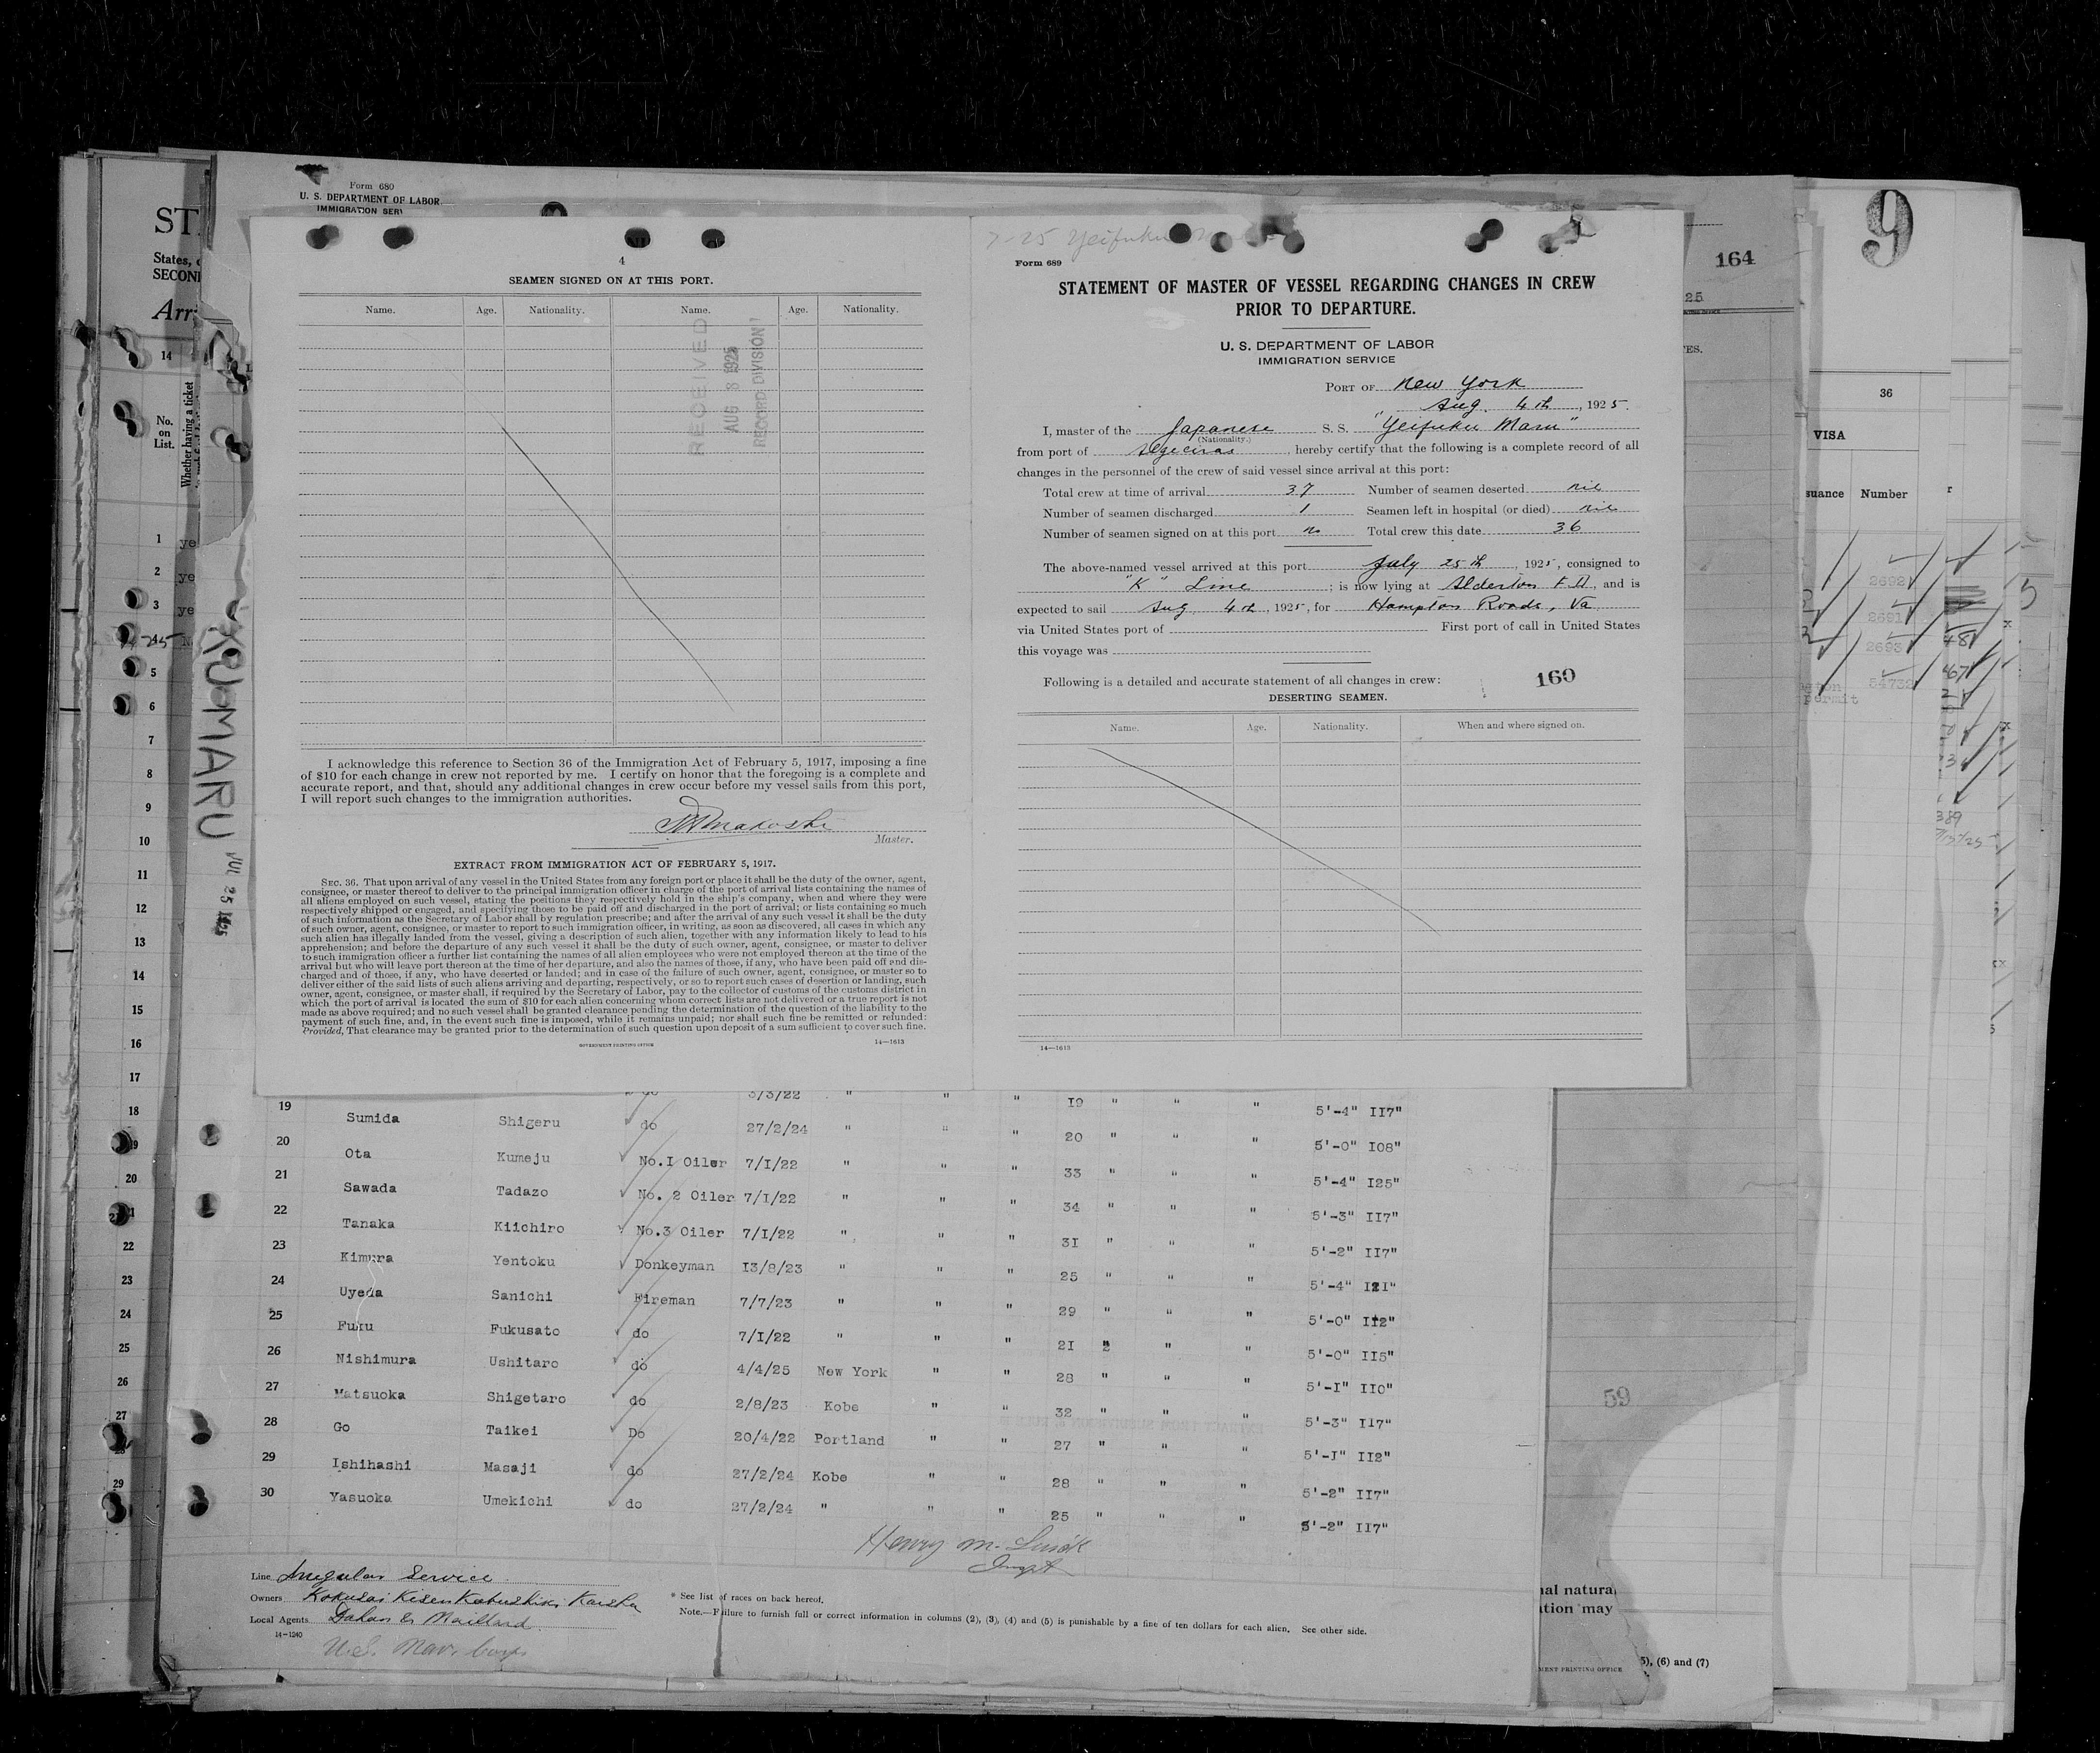 Form 680
U. S. DEPARTMENT OF LABOR
IMMIGRATION SERV
ST
States,
SECON
Arr
14
No.
on
List.
Whether having a ticket
XU MARU
JUL 25 1925
4
SEAMEN SIGNED ON AT THIS PORT.
Name. Age. Nationality. Name. Age. Nationality.
RECEIVED
AUG 8 1925
RECORD DIVISION
I acknowledge this reference to Section 36 of the Immigration Act of February 5, 1917, imposing a fine
of $10 for each change in crew not reported by me. I certify on honor that the foregoing is a complete and
accurate report, and that, should any additional changes in crew occur before my vessel sails from this port,
I will report such changes to the immigration authorities.
Master.
EXTRACT FROM IMMIGRATION ACT OF FEBRUARY 5, 1917.
SEC. 36. That upon arrival of any vessel in the United States from any foreign port or place it shall be the duty of the owner, agent,
consignee, or master thereof to deliver to the principal immigration officer in charge of the port of arrival lists containing the names of
all aliens employed on such vessel, stating the positions they respectively hold in the ship's company, when and where they were
respectively shipped or engaged, and specifying those to be paid off and discharged in the port of arrival; or lists containing so much
of such information as the Secretary of Labor shall by regulation prescribe; and after the arrival of any such vessel it shall be the duty
of such owner, agent, consignee, or master to report to such immigration officer, in writing, as soon as discovered, all cases in which any
such alien has illegally landed from the vessel, giving a description of such alien, together with any information likely to lead to his
apprehension; and before the departure of any such vessel it shall be the duty of such owner, agent, consignee, or master to deliver
to such immigration officer a further list containing the names of all alien employees who were not employed thereon at the time of the
arrival but who will leave port thereon at the time of her departure, and also the names of those, if any, who have been paid off and dis-
charged and of those, if any, who have deserted or landed; and in case of the failure of such owner, agent, consignee, or master so to
deliver either of the said lists of such aliens arriving and departing, respectively, or so to report such cases of desertion or landing, such
owner, agent, consignee, or master shall, if required by the Secretary of Labor, pay to the collector of customs of the customs district in
which the port of arrival is located the sum of $10 for each alien concerning whom correct lists are not delivered or a true report is not
made as above required; and no such vessel shall be granted clearance pending the determination of the question of the liability to the
payment of such fine, and, in the event such fine is imposed, while it remains unpaid; nor shall such fine be remitted or refunded:
Provided, That clearance may be granted prior to the determination of such question upon deposit of a sum sufficient to cover such fine.
GOVERNMENT PRINTING OFFICE 14—1613
7-25 Yeifuku
Form 689
STATEMENT OF MASTER OF VESSEL REGARDING CHANGES IN CREW
PRIOR TO DEPARTURE.
U. S. DEPARTMENT OF LABOR
IMMIGRATION SERVICE
PORT OF New York
Aug. 4th, 1925.
I, master of the Japanese S. S. "Yeifuku Maru"
(Nationality.)
from port of Algeciras, hereby certify that the following is a complete record of all
changes in the personnel of the crew of said vessel since arrival at this port:
Total crew at time of arrival 37 Number of seamen deserted nil
Number of seamen discharged 1 Seamen left in hospital (or died) nil
Number of seamen signed on at this port no Total crew this date 36
The above-named vessel arrived at this port July 25th, 1925, consigned to
"K" Line; is now lying at Alderton, and is
expected to sail Aug 4th, 1925, for Hampton Roads, Va
via United States port of First port of call in United States
this voyage was
Following is a detailed and accurate statement of all changes in crew: 160
DESERTING SEAMEN.
Name. Age. Nationality. When and where signed on.
14—1613
164
25
9
36
VISA
suance Number
2692
2691
2693
54732
permit
59
do 3/3/22 " " " 19 " " " 5'-4" II7"
19 Sumida Shigeru do 27/2/24 " " " 20 " " " 5'-0" I08"
20 Ota Kumeju No.I Oiler 7/I/22 " " " 33 " " " 5'-4" I25"
21 Sawada Tadazo No. 2 Oiler 7/I/22 " " " 34 " " " 5'-3" II7"
22 Tanaka Kiichiro No.3 Oiler 7/I/22 " " " 3I " " " 5'-2" II7"
23 Kimura Yentoku Donkeyman I3/8/23 " " " 25 " " " 5'-4" I2I"
24 Uyeda Sanichi Fireman 7/7/23 " " " 29 " " " 5'-0" II2"
25 Fuku Fukusato do 7/I/22 " " " 2I " " " 5'-0" II5"
26 Nishimura Ushitaro do 4/4/25 New York " " 28 " " " 5'-I" II0"
27 Matsuoka Shigetaro do 2/8/23 Kobe " " 32 " " " 5'-3" II7"
28 Go Taikei Do 20/4/22 Portland " " 27 " " " 5'-I" II2"
29 Ishihashi Masaji do 27/2/24 Kobe " " 28 " " " 5'-2" II7"
30 Yasuoka Umekichi do 27/2/24 " " " 25 " " " 5'-2" II7"
Line Irregular Service
Owners Kokusai Kisen Kabushiki Kaisha
Local Agents Maillard
14—1240
* See list of races on back hereof.
Note.—Failure to furnish full or correct information in columns (2), (3), (4) and (5) is punishable by a fine of ten dollars for each alien. See other side.
Henry M.
nal natura
ation may
5), (6) and (7)
MENT PRINTING OFFICE